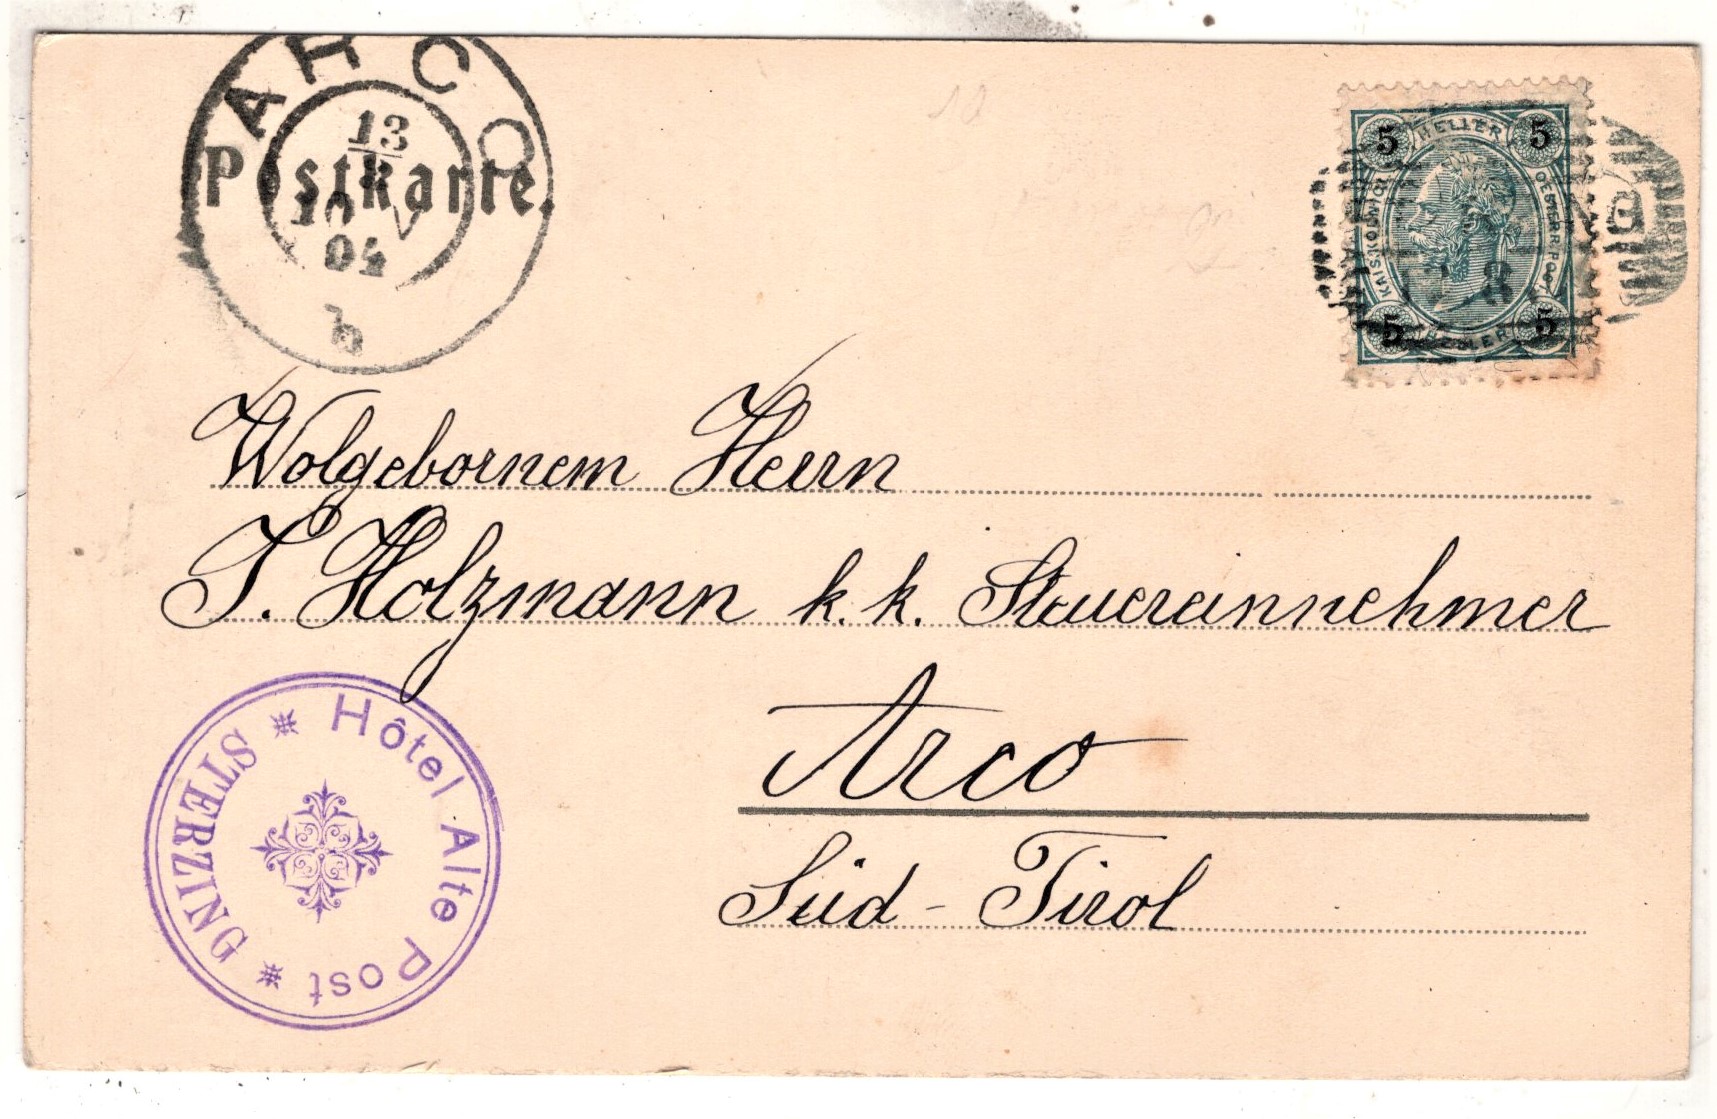 ARCO
13
8
10 V
04
b
Postkarte.
5 HELLER 5
KAIS. KÖNIGL. OESTERR. POST
5 HELLER 5
8
Wolgebornem Herrn
J. Holzmann k. k. Steuereinnehmer
Arco
Süd - Tirol
Hôtel Alte Post
STERZING